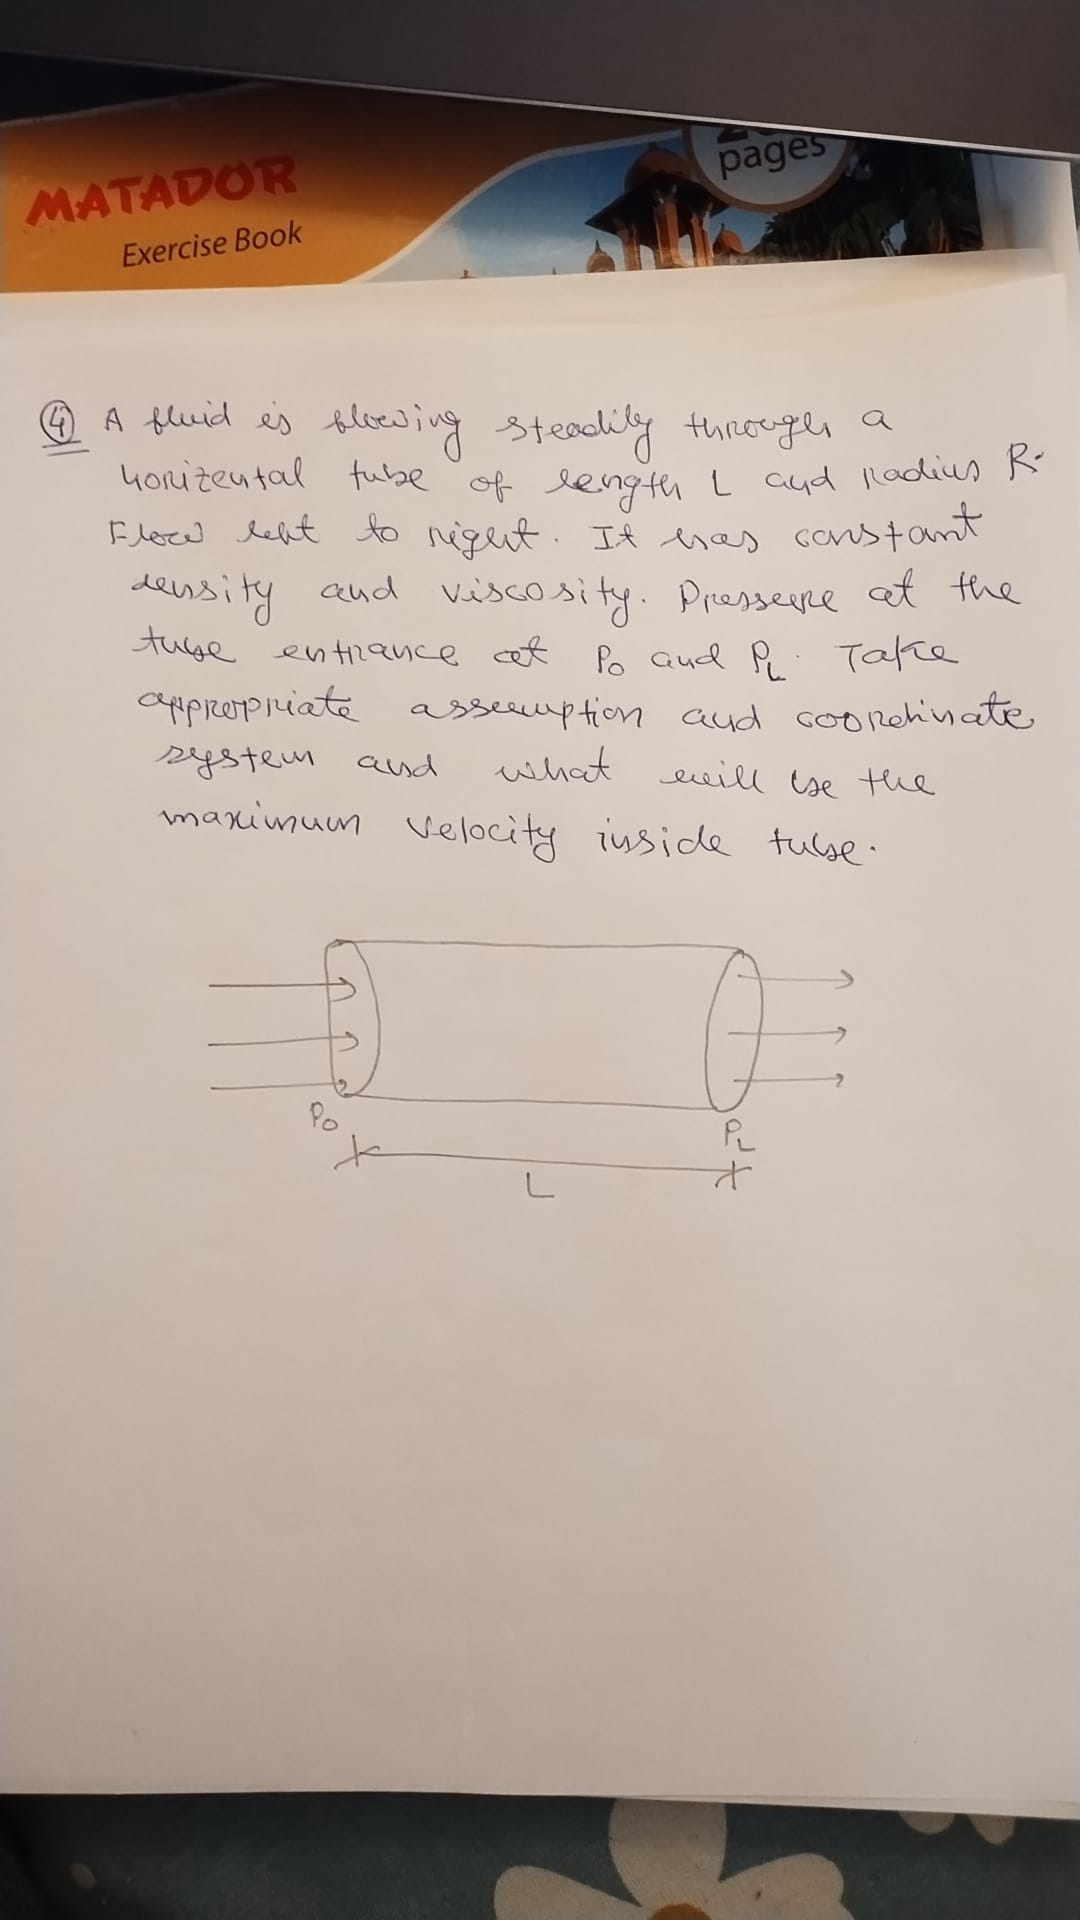 pages
MATADOR
Exercise Book
④ A fluid is flowing steadily through a
horizental tube of length L and radius R.
Flow left to right. It has constant
density and viscosity. Pressure at the
tube entrance at P₀ and P_L. Take
appropriate assumption and coordinate
system and what will be the
maximum velocity inside tube.
P₀
P_L
L